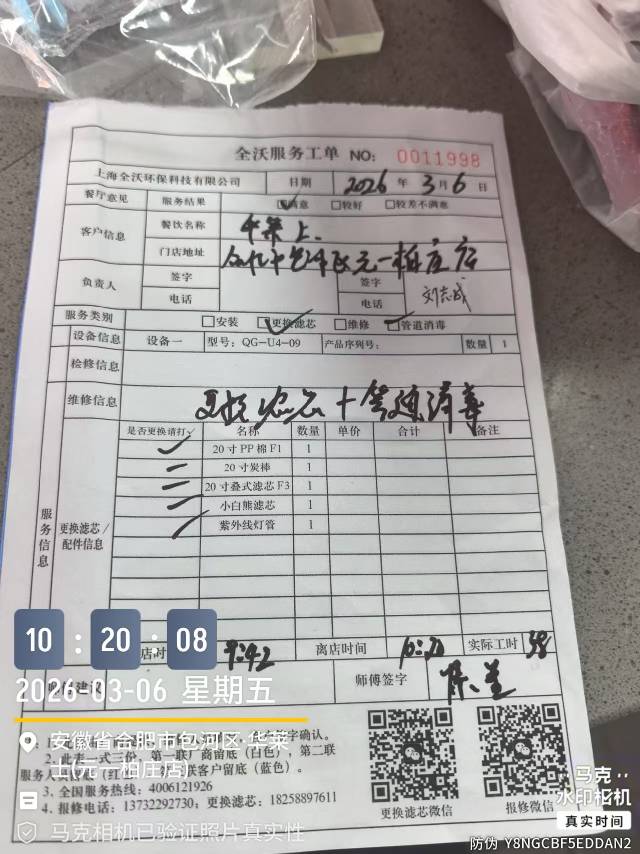 全沃服务工单 NO: 0011998
上海全沃环保科技有限公司 日期 2026 年 3 月 6 日
餐厅意见 服务结果 满意 较好 较差不满意
客户信息 餐饮名称 华莱士
门店地址
负责人 签字 签字
电话 电话 刘志成
服务类别 安装 更换滤芯 维修 管道消毒
设备信息 设备一 型号: QG-U4-09 产品序列号: 数量 1
检修信息
维修信息 更换滤芯+管道消毒
是否更换请打√ 名称 数量 单价 合计 备注
20寸PP棉F1 1
20寸炭棒 1
20寸叠式滤芯F3 1
小白熊滤芯 1
紫外线灯管 1
服务信息
更换滤芯/
配件信息
店时 9:42 离店时间 10:20 实际工时 38
建议 师傅签字
10:20:08
2026-03-06 星期五
安徽省合肥市包河区·华莱
士(元一柏庄店)
字确认。
2. 此表一式三份,第一联厂商留底(白色),第二联
服务人 (红 联客户留底(蓝色)。
3. 全国服务热线: 4006121926
4. 报修电话: 13732292730, 更换滤芯: 18258897611
更换滤芯微信 报修微信
马克相机已验证照片真实性
马克
水印相机
真实时间
防伪 Y8NGCBF5EDDAN2